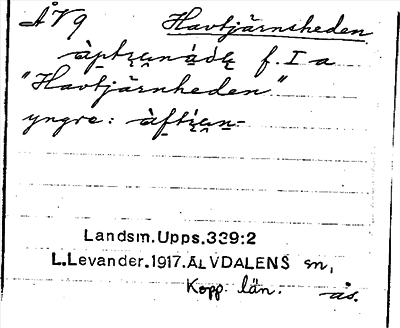 ÅV9 Havtjärnsheden
f. I a
"Havtjärnheden"
yngre:
Landsm.Upps.339:2
L.Levander.1917.ÄLVDALENS sn,
Kopp. län. ås.